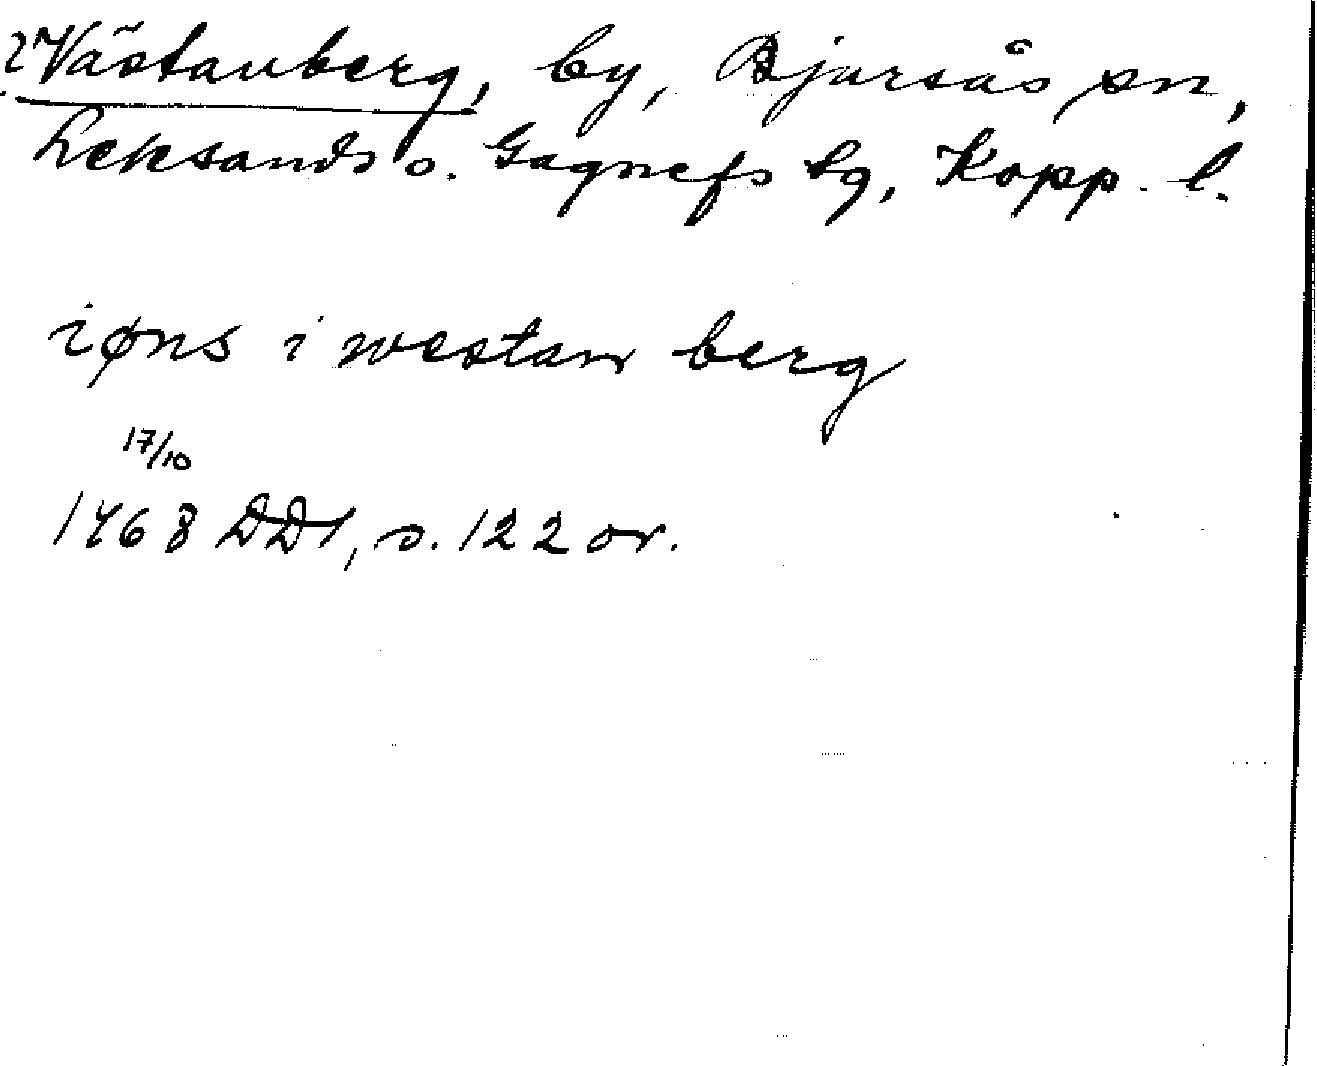 ?Västanberg, by, Bjursås sn,
Leksands o. Gagnefs tg, Kopp. l.
iøns i westan berg
17/10
1468 DD1, s. 122 or.